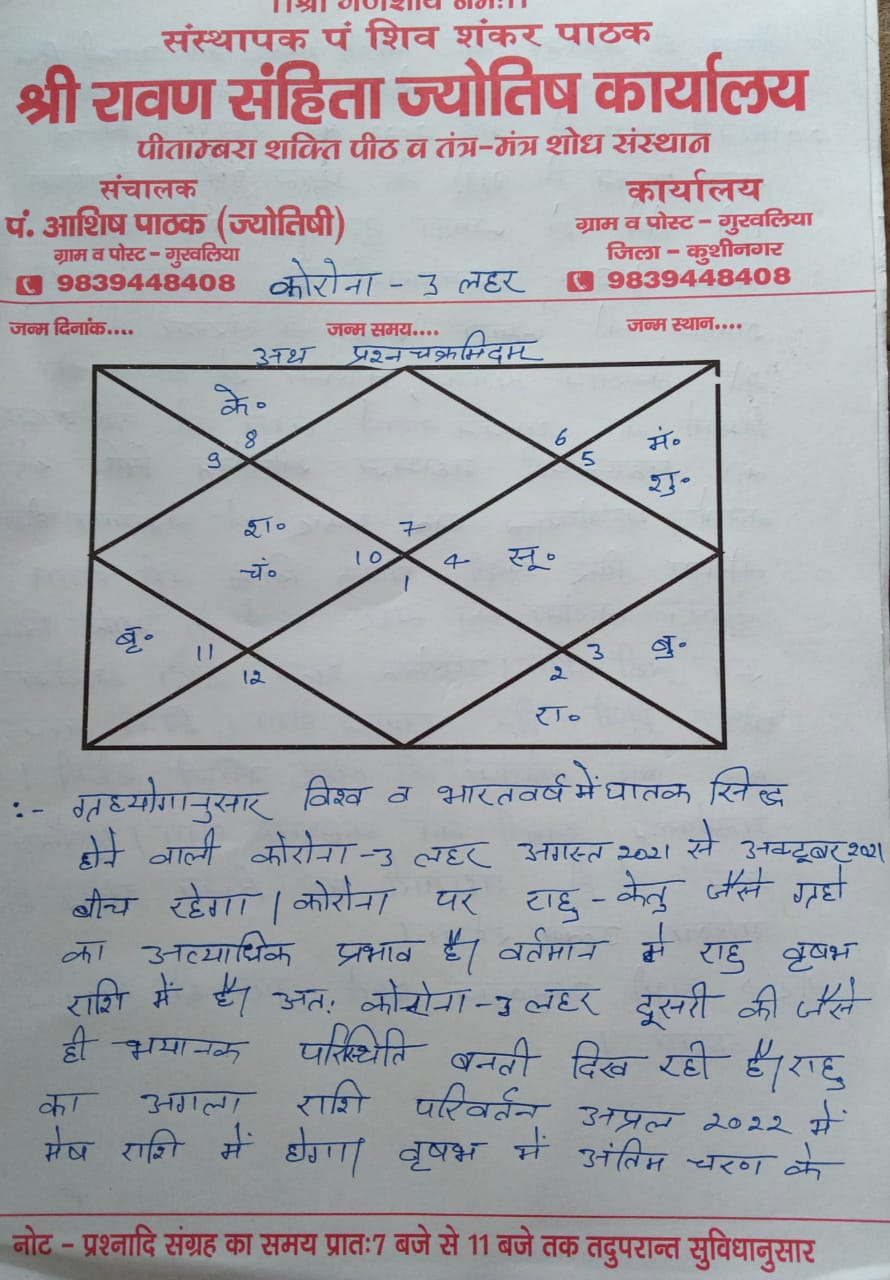 ।।श्री गणेशाय नमः।।
संस्थापक पं शिव शंकर पाठक
श्री रावण संहिता ज्योतिष कार्यालय
पीताम्बरा शक्ति पीठ व तंत्र-मंत्र शोध संस्थान
संचालक
पं. आशिष पाठक (ज्योतिषी)
ग्राम व पोस्ट - गुरवलिया
9839448408
कार्यालय
ग्राम व पोस्ट - गुरवलिया
जिला - कुशीनगर
9839448408
कोरोना - 3 लहर
जन्म दिनांक.... जन्म समय.... जन्म स्थान....
अथ प्रश्नचक्रमिदम
के॰
8
9
6
5
मं॰
शु॰
श॰
चं॰
7
10
4
1
सू॰
बृ॰
11
12
3
2
बु॰
रा॰
:- ग्रहयोगानुसार विश्व व भारतवर्ष में घातक सिद्ध
होने वाली कोरोना-3 लहर अगस्त 2021 से अक्टूबर 2021
बीच रहेगा। कोरोना पर राहु - केतु जैसे ग्रहो
का अत्याधिक प्रभाव है। वर्तमान मे राहु वृषभ
राशि में है। अतः कोरोना-3 लहर दूसरी की जैसे
ही भयानक परिस्थिति बनती दिख रही है। राहु
का अगला राशि परिवर्तन अप्रल २०२२ में
मेष राशि में होगा। वृषभ में अंतिम चरण के
नोट - प्रश्नादि संग्रह का समय प्रातः7 बजे से 11 बजे तक तदुपरान्त सुविधानुसार